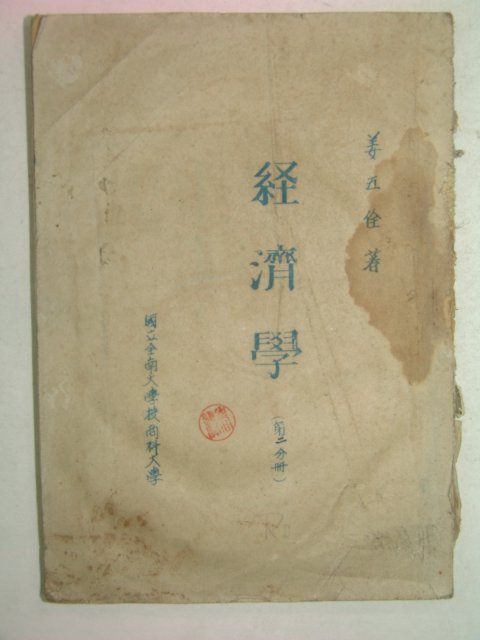 姜五佺 著
経濟學
(第二分冊)
國立全南大學校商科大學